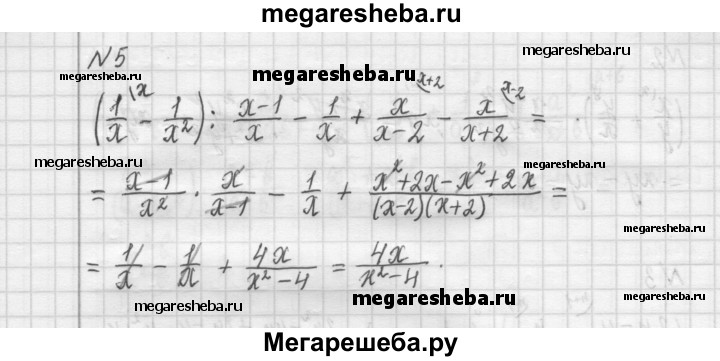 megaresheba.ru
N5
megaresheba.ru megaresheba.ru megaresheba.ru
(1/x |x - 1/x²) : (x-1)/x - 1/x + x/(x-2) (x+2 - x/(x+2) (x-2 =
megaresheba.ru megaresheba.ru
= (x-1)/x² · x/(x-1) - 1/x + (x²+2x-x²+2x)/((x-2)(x+2)) =
megaresheba.ru megaresheba.ru
= 1/x - 1/x + 4x/(x²-4) = 4x/(x²-4).
megaresheba.ru megaresheba.ru
Мегарешеба.ру